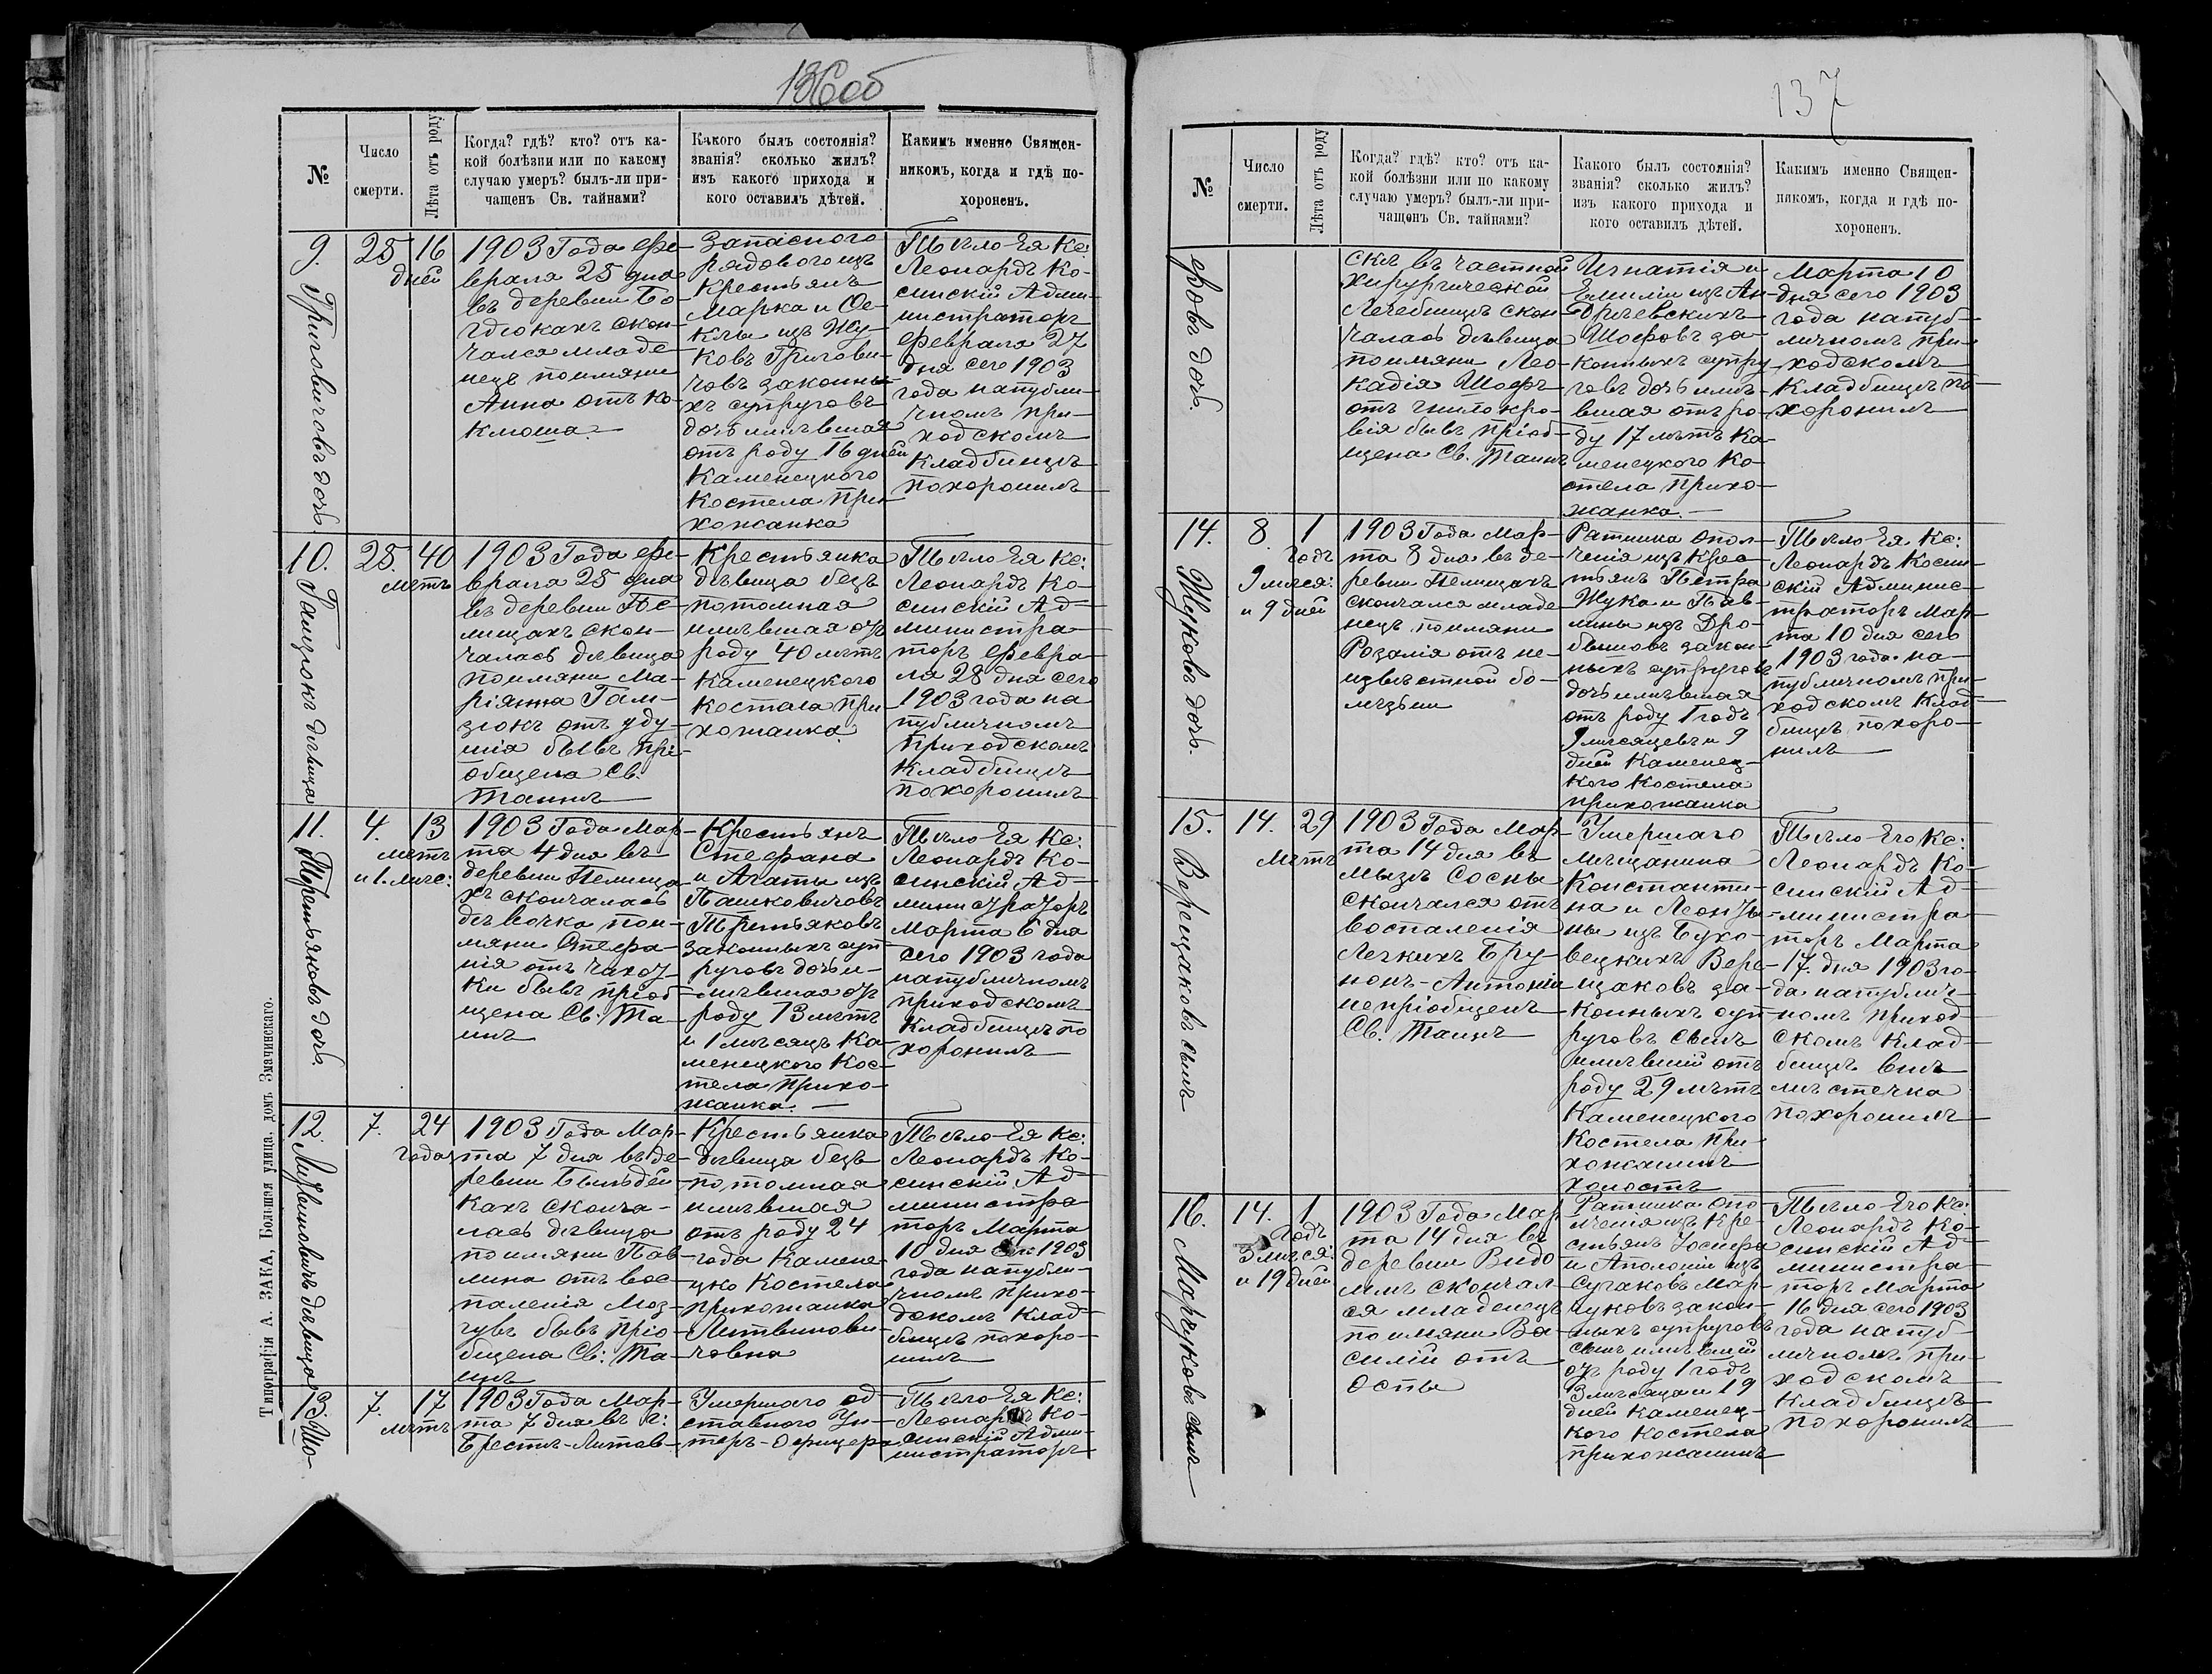 136об
№
Число
смерти.
Лѣта отъ роду
Когда? гдѣ? кто? отъ ка-
кой болѣзни или по какому
случаю умеръ? былъ-ли при-
чащенъ Св. тайнами?
Какого былъ состоянія?
званія? сколько жилъ?
изъ какого прихода и
кого оставилъ дѣтей.
Какимъ именно Священ-
никомъ, когда и гдѣ по-
хороненъ.
9.
Григовичовъ дочь.
25
16
дней
1903 Года Фе-
враля 25 дня
въ деревни Бо-
гдюкахъ скон-
чался младе
нецъ поимяни
Анна отъ ко-
клюша.
Запасного
рядового изъ
крестьянъ
Марка и Ѳе-
клы изъ Жу-
ковъ Григови-
човъ законны-
хъ супруговъ
дочь имѣвшая
отъ роду 16 дней
Каменецкого
Костела При
хожанка
Тѣло Ея Кс:
Леонардъ Ко-
синскій Адми-
нистраторъ
Февраля 27
дня сего 1903
года напубли-
чномъ при-
ходскомъ
Кладбищѣ
похоронилъ
10.
Гамзюкъ дѣвица
25.
40
лѣтъ
1903 Года Фе-
враля 25 дня
въ деревни Пе-
лищахъ скон-
чалась дѣвица
поимяни Ма-
ріянна Гам-
зюкъ отъ уду-
шія бывъ прі-
общена Св.
Таинъ
Крестьянка
дѣвица безъ
потомная
имѣвшая отъ
роду 40 лѣтъ
Каменецкого
Костела при
хожанка.
Тѣло Ея Кс:
Леонардъ Ко-
синскій Ад-
министра-
торъ Февра-
ля 28 дня сего
1903 года на
публичномъ
Приходскомъ
Кладбищѣ
Похоронилъ
11.
Третьяковъ дочь.
4.
13
лѣтъ
и 1. мѣс:
1903 Года Мар-
та 4 дня въ
деревни Пелища
хъ скончалась
дѣвочка пои-
мяни Стефа-
нія отъ чахот-
ки бывъ пріоб
щена Св: Та-
инъ
Крестьянъ
Стефана
и Агаты изъ
Пашковичовъ
Третьяковъ
законныхъ суп
руговъ дочь и-
мѣвшая отъ
роду 13 лѣтъ
и 1 мѣсяцъ Ка-
менецкого Кос-
тела Прихо-
жанка.
Тѣло Ея Кс:
Леонардъ Ко-
синскій Ад-
министраторъ
Марта 6 дня
сего 1903 года
напубличномъ
приходскомъ
Кладбищѣ по
хоронилъ
12.
Литвиновичъ дѣвица
7.
24
года
1903 Года Мар-
та 7 дня въ де-
ревни Бильдей-
кахъ сконча-
лась дѣвица
поимяни Пав
лина отъ вос-
паленія Моз-
гувъ бывъ пріо-
бщена Св: Та-
инъ
Крестьянка
дѣвица безъ
потомная
имѣвшая
отъ роду 24
года Камене
цко Костела
прихожанка
Литвинови-
човна
Тѣло Ея Кс:
Леонардъ Ко-
синскій Ад-
министра
торъ Марта
10 дня сего 1903
года напубли-
чномъ прихо-
дскомъ Клад-
бищѣ похоро-
нилъ
13.
Шо-
7.
17
лѣтъ
1903 Года Мар-
та 7 дня въ г:
Брестъ-Литов-
Умершого од
ставного Ун-
теръ-Офицера
Тѣло Ея Кс:
Леонардъ Ко-
синскій Адми-
нистраторъ
Типографія А. ЗАКА, Большая улица, домъ Змачинскаго.
137
№
Число
смерти.
Лѣта отъ роду
Когда? гдѣ? кто? отъ ка-
кой болѣзни или по какому
случаю умеръ? былъ-ли при-
чащенъ Св. тайнами?
Какого былъ состоянія?
званія? сколько жилъ?
изъ какого прихода и
кого оставилъ дѣтей.
Какимъ именно Священ-
никомъ, когда и гдѣ по-
хороненъ.
фовъ дочь.
скѣ въ частной
Хирургической
Лечебницѣ скон
чалась дѣвица
поимяни Лео-
кадія Шофъ
отъ гнилокро-
вія бывъ пріоб-
щена Св. Таинъ
Игнатія и
Емиліи изъ Ан-
држеевскихъ
Шофовъ за-
конныхъ супру
говъ дочь имѣ-
вшая отъ ро-
ду 17 лѣтъ Ка-
менецкого Ко-
стела Прихо-
жанка.
Марта 10
дня сего 1903
года напуб-
личномъ при-
ходскомъ
Кладбищѣ по-
хоронилъ
14.
Жуковъ дочь.
8.
1
годъ
9 мѣся:
и 9 дней
1903 Года Мар-
та 8 дня въ де-
ревни Пелищахъ
скончался младе
нецъ поимяни
Розалія отъ не-
извѣстной бо-
лѣзни
Ратника опол-
ченія изъ Крес-
тьянъ Петра
Жука и Пав-
лины изъ Дро-
бышовъ закон-
ныхъ супруговъ
дочь имѣвшая
отъ роду 1 годъ
9 мѣсяцевъ и 9
дней Каменец-
кого Костела
прихожанка
Тѣло Ея Кс:
Леонардъ Косин
скій Админис-
траторъ Мар-
та 10 дня сего
1903 года. на-
публичномъ при-
ходскомъ Клад-
бищѣ похоро-
нилъ
15.
Верещаковъ сынъ
14.
29
лѣтъ
1903 Года Мар-
та 14 дня въ
Мызѣ Сосны
скончался отъ
воспаленія
Легкихъ Бру-
нонъ-Антоній
непріобщенъ
Св. Таинъ
Умершаго
мѣщанина
Константи-
на и Леонти-
ны изъ Буко-
вецкихъ Вере-
щаковъ за-
конныхъ суп
руговъ сынъ
имѣвшій отъ
роду 29 лѣтъ
Каменецкого
Костела при-
хожанинъ
холостъ
Тѣло Его Кс:
Леонардъ Ко-
синскій Ад-
министра-
торъ Марта
17. дня 1903 го-
да напублич-
номъ приход-
скомъ Клад-
бищѣ внѣ
мѣстечка
похоронилъ
16.
Марчуковъ сынъ
14.
1
годъ
3 мѣся:
и 19 дней
1903 Года Мар
та 14 дня въ
деревни Видо
млѣ скончал-
ся младенецъ
поимяни Ва-
силій отъ
Оспы
Ратника опо
лченія изъ Кре-
стьянъ Іосифа
и Аполоніи изъ
Сучаковъ Мар-
чуковъ закон-
ныхъ супруговъ
сынъ имѣвшій
отъ роду 1 годъ
3 мѣсяца и 19
дней Каменец-
кого Костела
прихожанинъ
Тѣло Его Кс:
Леонардъ Ко-
синскій Ад-
министра-
торъ Марта
16 дня сего 1903
года напуб-
личномъ при-
ходскомъ
Кладбищѣ
похоронилъ